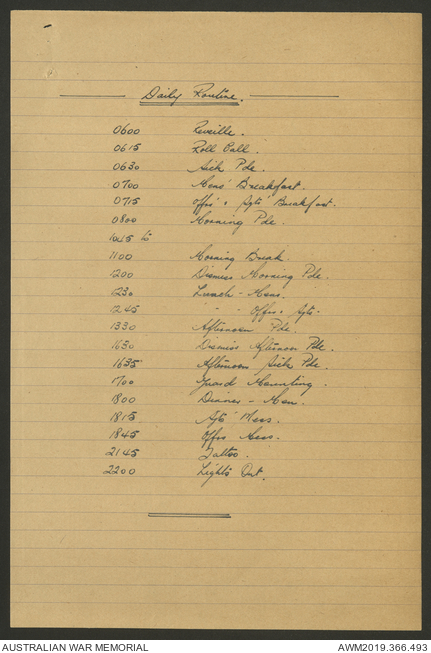 Daily Routine.
0600 Reveille.
0615 Roll Call.
0630 Sick Pde.
0700 Mens' Breakfast.
0715 Offrs' & Sgts' Breakfast.
0800 Morning Pde.
1045 to
1100 Morning Break.
1200 Dismiss Morning Pde.
1230 Lunch - Mens.
1245 " - Offrs & Sgts.
1330 Afternoon Pde.
1630 Dismiss Afternoon Pde.
1635 Afternoon Sick Pde.
1700 Guard Mounting.
1800 Dinner - Men.
1815 Sgts' Mess.
1845 Offrs Mess.
2145 Tattoo.
2200 Lights Out.
AUSTRALIAN WAR MEMORIAL AWM2019.366.493